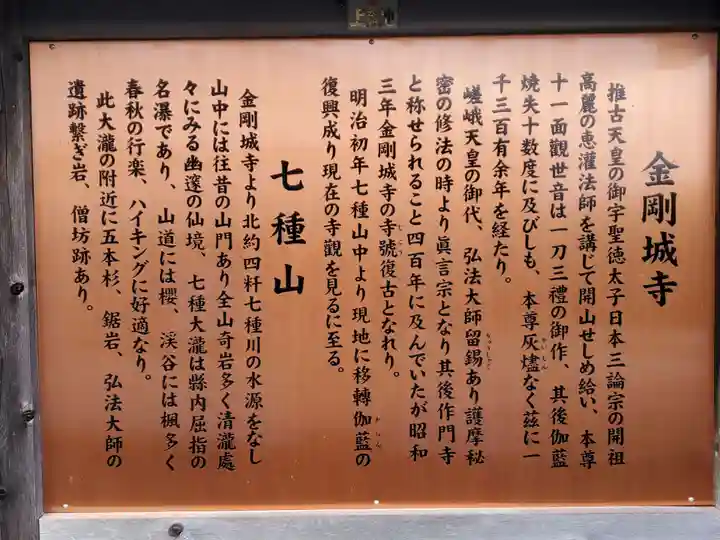 金剛城寺
推古天皇の御宇聖徳太子日本三論宗の開祖
高麗の恵灌法師を講じて開山せしめ給い、本尊
十一面觀世音は一刀三禮の御作、其後伽藍
焼失十数度に及びしも、本尊灰燼なく茲に一
千三百有余年を経たり。
嵯峨天皇の御代、弘法大師留錫あり護摩秘
密の修法の時より眞言宗となり其後作門寺
と称せられること四百年に及んでいたが昭和
三年金剛城寺の寺號復古となれり。
明治初年七種山中より現地に移轉伽藍の
復興成り現在の寺觀を見るに至る。
七種山
金剛城寺より北約四粁七種川の水源をなし
山中には往昔の山門あり全山奇岩多く清瀧處
々にみる幽邃の仙境、七種大瀧は縣内屈指の
名瀑であり、山道には櫻、渓谷には楓多く
春秋の行楽、ハイキングに好適なり。
此大瀧の附近に五本杉、鋸岩、弘法大師の
遺跡繋ぎ岩、僧坊跡あり。